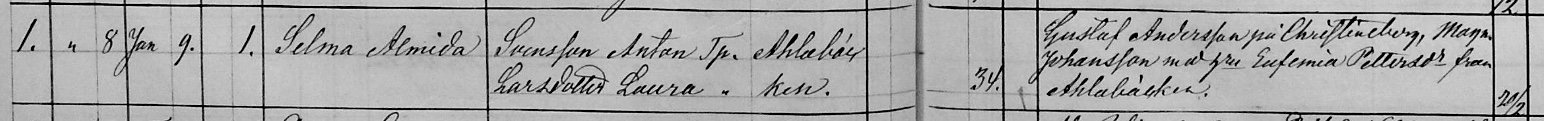 12.
Gustaf Andersson på Christineberg, Magn.
1. " 8 Jan 9. 1. Selma Almida Svensson Anton Tp. Ahlabäc
Johansson med hru Eufemia Pettersdr från
Larsdotter Laura " ken. 34. Ahlabäcken. 20/2